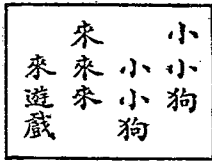 小小狗
小小狗
來來來
來遊戲